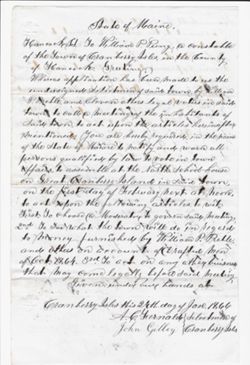 State of Maine.
Hancock, ss. To William P. Preble, a constable
of the Town of Cranberry Isles, in the County
of Hancock, Greeting
Whereas application has been made to us the
undersigned selectmen of said town by William
P. Preble and eleven other legal voters in said
town to call a meeting of the inhabitants of
said town to act upon the articles hereinafter
mentioned. You are hereby required in the name
of the State of Maine to notify and warn all
persons qualified by law to vote in town
affairs to assemble at the north school house
on Great Cranberry Island in said Town
on the first day of February next at
to act upon the following articles to wit
First. To choose a Moderator to govern said meeting
2nd To see what the town will do in regard
to Money furnished by William P. Preble
and others on favour of drafted men
of Oct 1864. 3rd To act on any other business
that may come legally before said meeting
Given under our hands at
Cranberry Isles this 24th day of Jan. 1866
A. C. Fernald Selectmen of
John Gilley Cranberry Isles